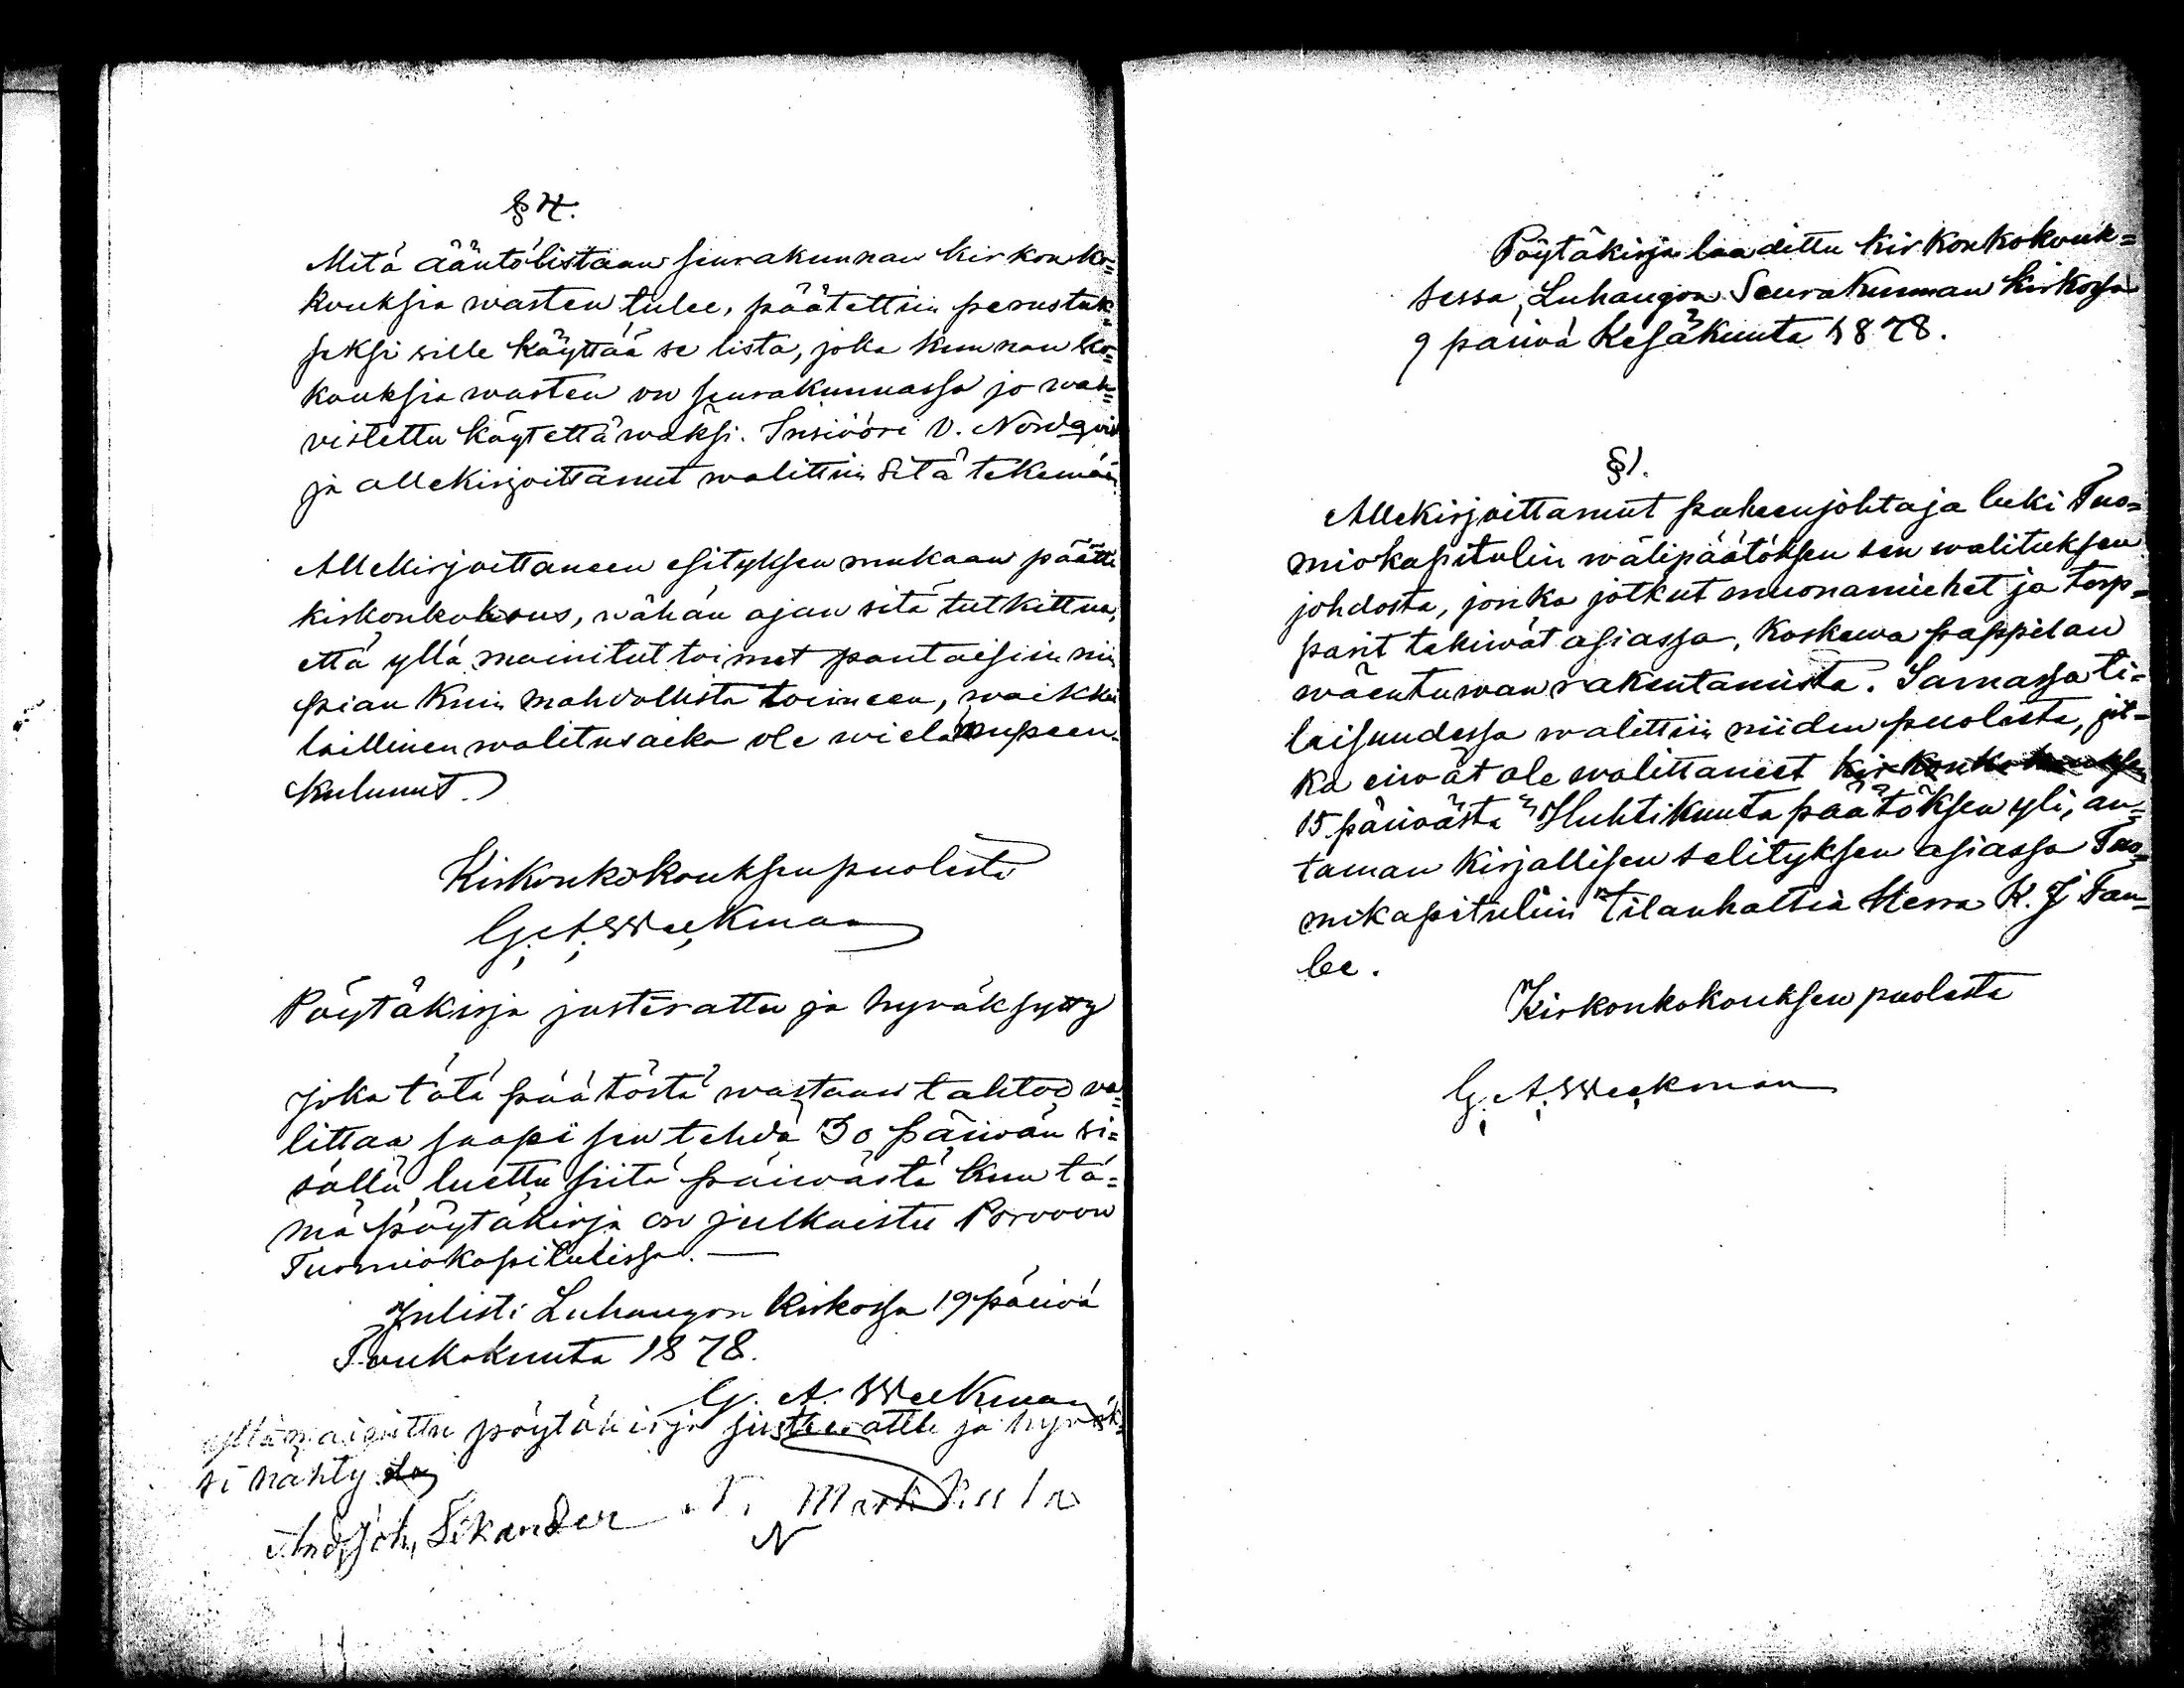 § 4.
Mitä ääntölistaan seurakunnan kirkonko=
kouksia warten tulee, päätettiin perustuk=
seksi sille käyttää se lista, joka kunnan ko=
kouksia warten on seurakunnassa jo wah=
vistettu käytettäwäksi. Insinööri V. Nordqvist
ja allekirjoittanut walittiin sitä tekemään.
Allekirjoittaneen esityksen mukaan päätti
kirkonkokous, wähän ajan sitä tutkittua,
että yllä mainitut toimet pantaisiin niin
pian kuin mahdollista toimeen, waikkei
laillinen walitusaika ole wielä umpeen
kulunut.
Kirkonkokouksen puolesta
G. A. Weckman
Pöytäkirja justerattu ja hyväksytty
Joka tätä päätöstä wastaan tahtoo va=
littaa saapi sen tehdä 30 päiwän si=
sällä luettu siitä päiwästä kun tä=
mä pöytäkirja on julkaistu Porvoon
Tuomiokapitulissa. —
Julisti Luhangon kirkossa 19 päiwä
Toukokuuta 1878.
G. A. Weckman
yllämainittu pöytäkirja justeerattu ja hyväk=
si nähty
And. Joh. Sikander
Pöytäkirja laadittu kirkonkokouk=
sessa, Luhangon Seurakunnan kirkossa
9 päiwä Kesäkuuta 1878.
§ 1.
Allekirjoittanut puheenjohtaja luki Tuo=
miokapitulin wälipäätöksen sen walituksen
johdosta, jonka jotkut muonamiehet ja torp=
parit tekiwät asiassa, koskewa pappilan
wäentuwan rakentamista. Samassa ti=
laisuudessa walittiin niiden puolesta, jot=
ka eiwät ole walittaneet kirkonkokouksen
15 päiwästä Huhtikuuta päätöksen yli, an=
taman kirjallisen selityksen asiassa Tuo=
mikapituliin tilanhaltia Herra K. J Fan=
lee.
Kirkonkokouksen puolesta
G. A. Weckman